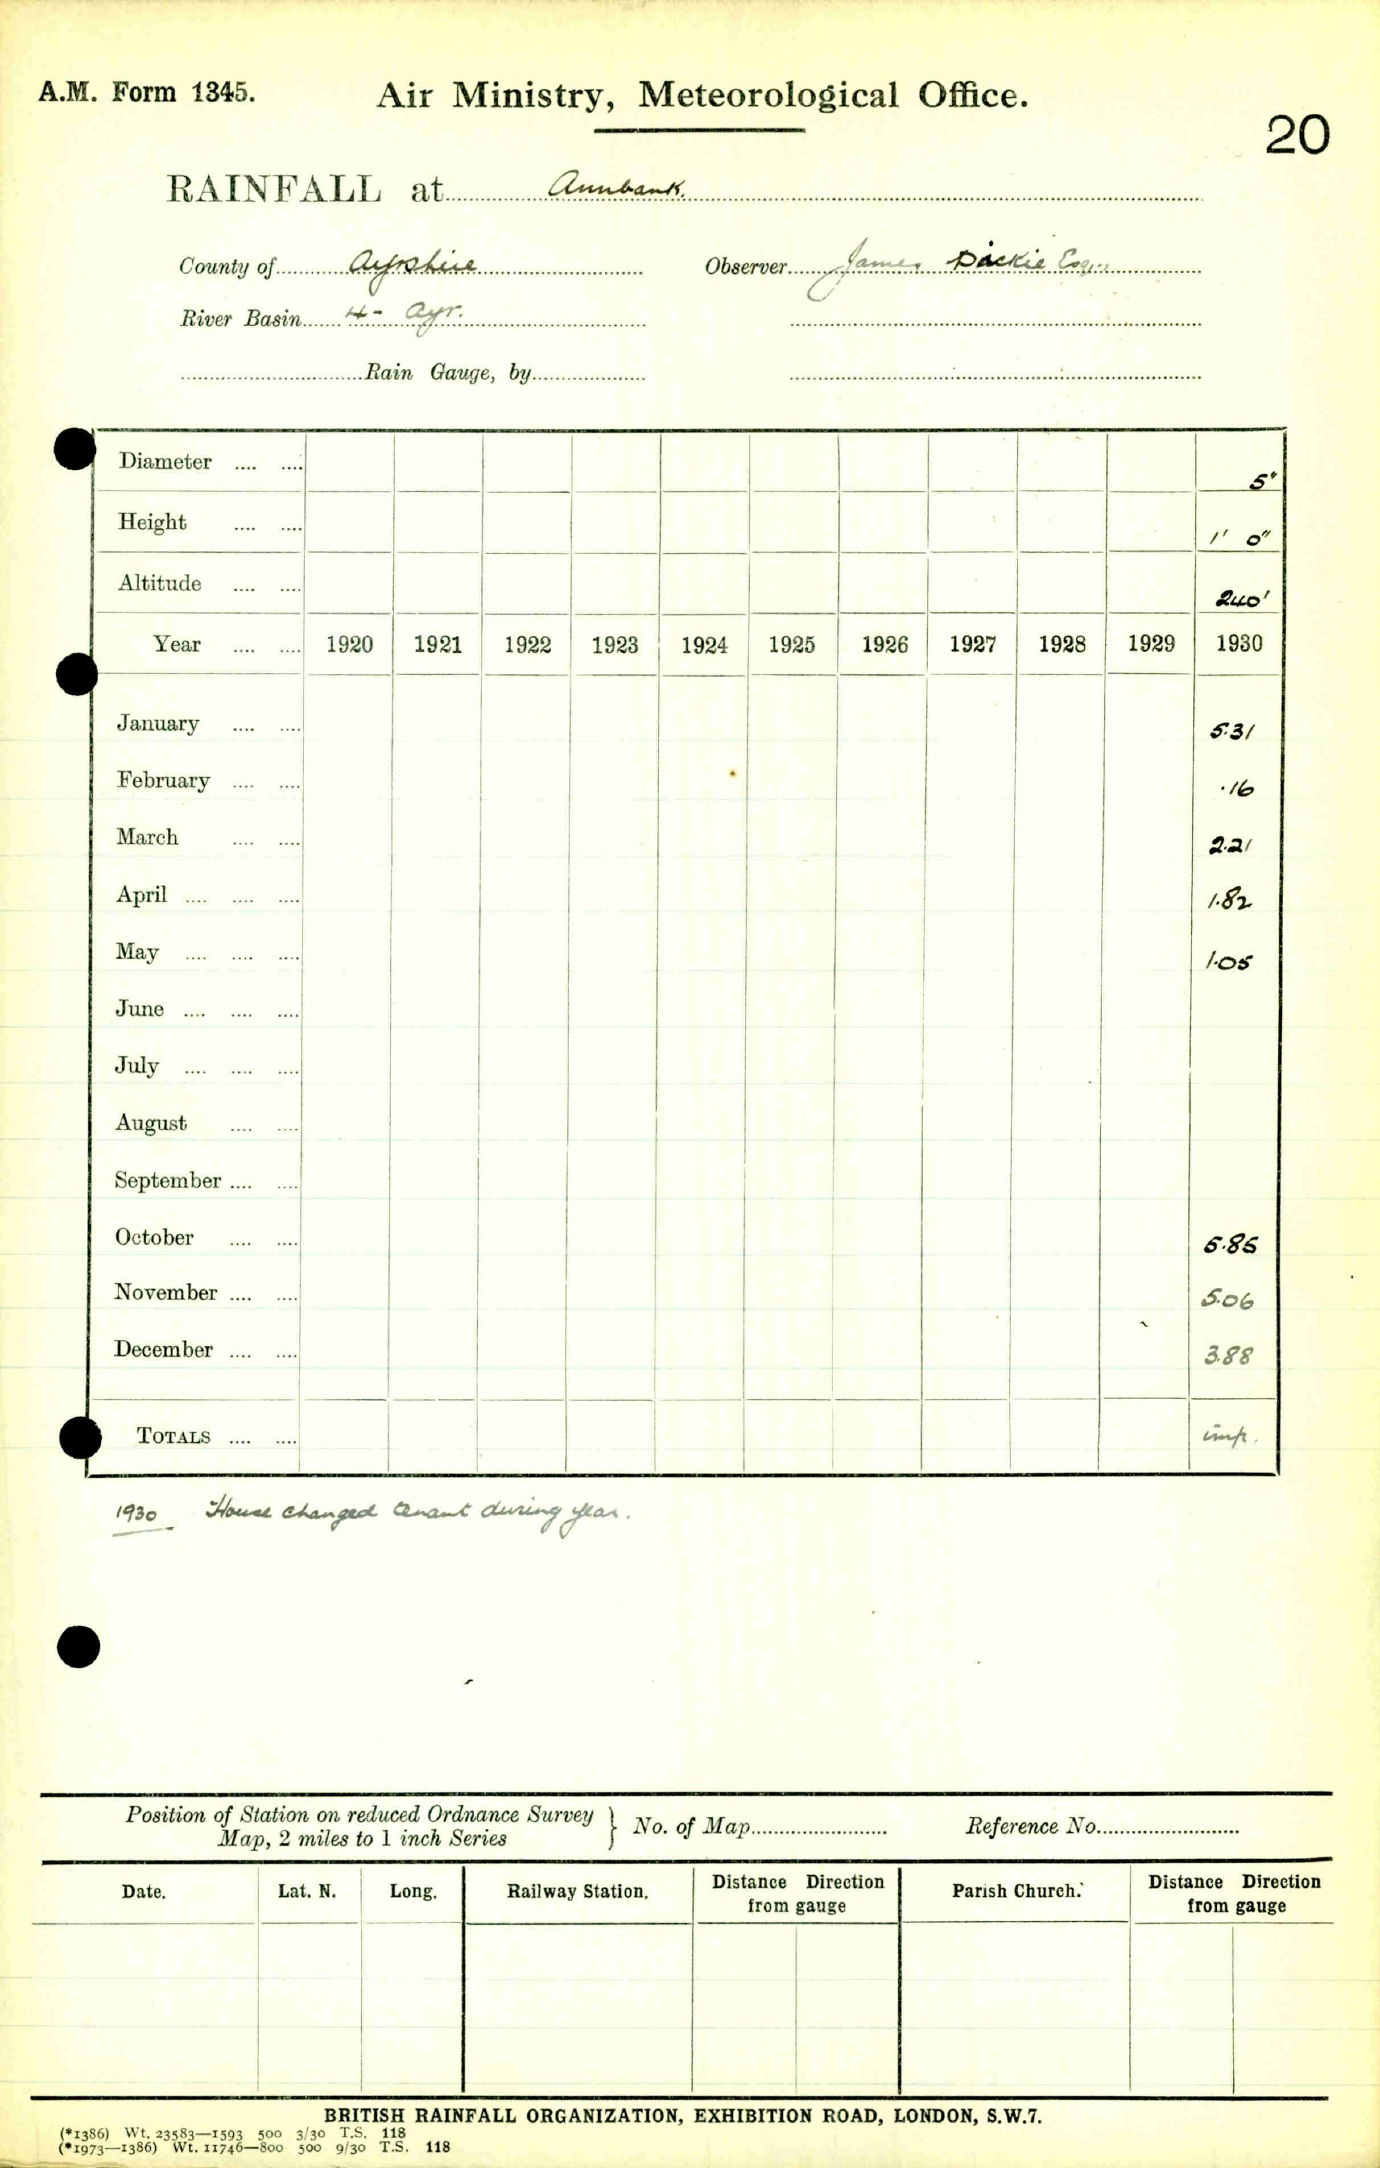 A.M. Form 1345.
Air Ministry, Meteorological Office.
20
RAINFALL at Annbank.
County of Ayrshire Observer James Dickie Esq.
River Basin 4- Ayr.
Rain Gauge, by
Diameter 5"
Height 1' 0"
Altitude 240'
Year 1920 1921 1922 1923 1924 1925 1926 1927 1928 1929 1930
January 5.31
February .16
March 2.21
April 1.82
May 1.05
June
July
August
September
October 5.85
November 5.06
December 3.88
TOTALS imp.
1930 House changed tenant during year.
Position of Station on reduced Ordnance Survey
Map, 2 miles to 1 inch Series } No. of Map Reference No.
Date. Lat. N. Long. Railway Station. Distance Direction from gauge Parish Church. Distance Direction from gauge
BRITISH RAINFALL ORGANIZATION, EXHIBITION ROAD, LONDON, S.W.7.
(*1386) Wt. 23583—1593 500 3/30 T.S. 118
(*1973—1386) Wt. 11746—800 500 9/30 T.S. 118